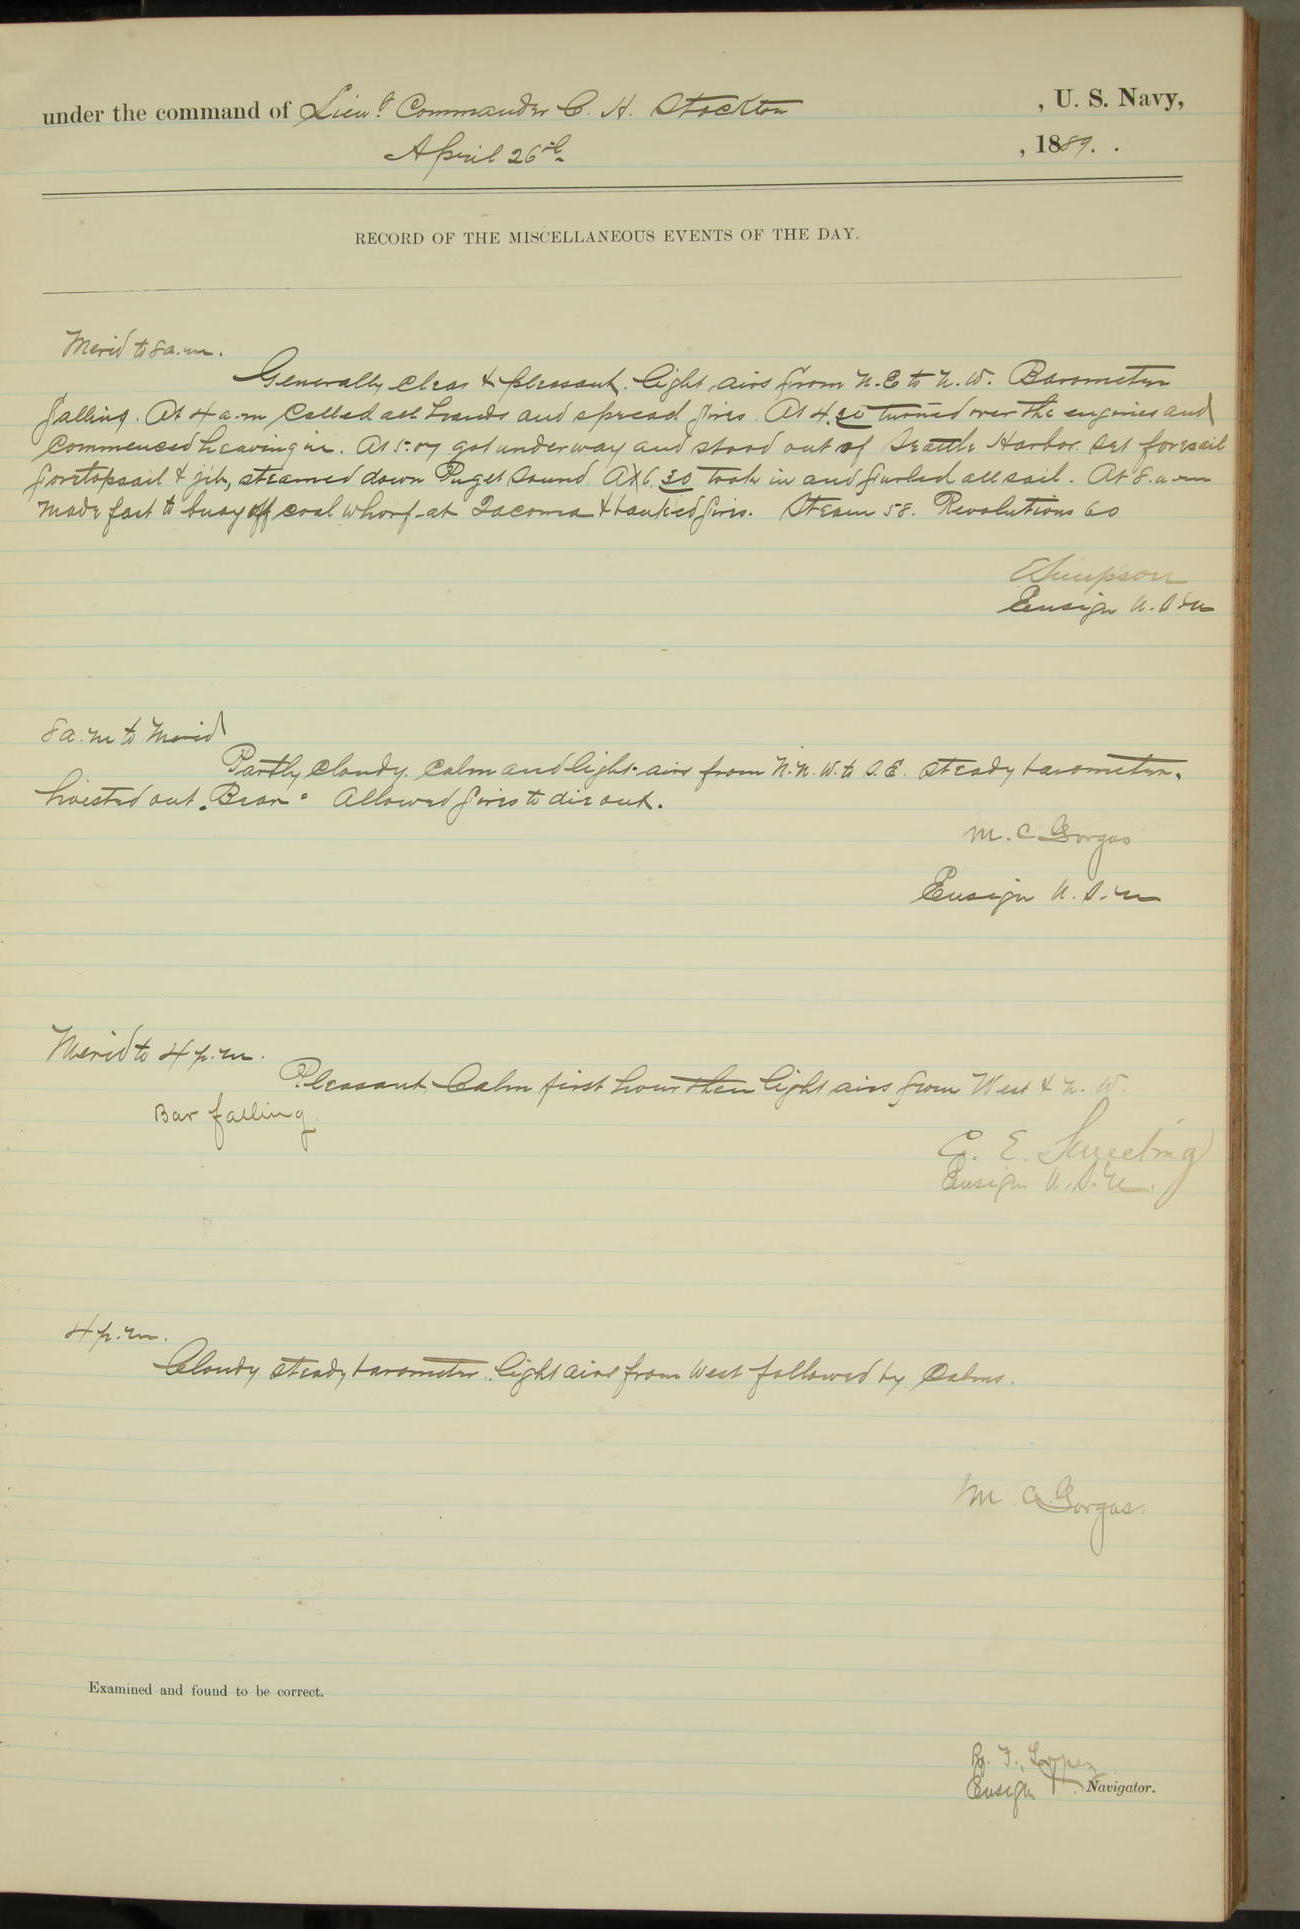 under the command of Lieut Commander C. H. Stockton , U. S. Navy,
April 26th , 1889.
RECORD OF THE MISCELLANEOUS EVENTS OF THE DAY.
Merid to 8 a.m.
Generally clear & pleasant. light airs from N.E to N.W. Barometer
falling. At 4 a.m called all hands and spread fires. At 4.30 turned over the engines and
commenced heaving in. At 5:07 got underway and stood out of Seattle Harbor. Set foresail
foretopsail & jib, steamed down Puget Sound. At 6.30 took in and furled all sail. At 8.a.m
made fast to buoy off coal wharf at Tacoma & banked fires. Steam 58. Revolutions 60
E Simpson
Ensign U.S.N
8 a.m to Merid
Partly cloudy. Calm and light airs from N.N.W. to S.E. steady barometer.
hoisted out "Bear" Allowed fires to die out.
M. C Gorgas
Ensign U.S.N
Merid to 4 p.m.
Pleasant, Calm first hour then light airs from West & N.W.
Bar falling.
C. E. Sweeting
Ensign U.S.N.
4 p.m.
Cloudy steady barometer. light airs from West followed by Calms.
M C Gorgas.
Examined and found to be correct.
R. F. Lopez
Ensign Navigator.